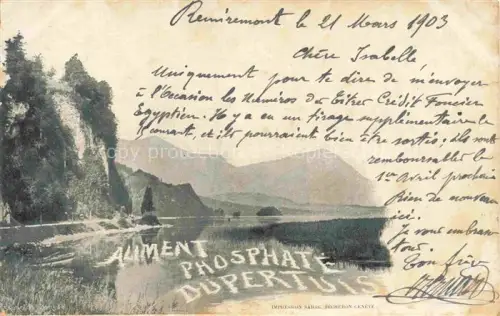 Remiremont le 21 Mars 1903
Chère Isabelle
Uniquement pour te dire de m'envoyer
à l'Occasion les Numéros des titres Crédit Foncier
Egyptien. Il y a eu un tirage supplémentaire le
courant, et ils pourraient bien être sortis; ils sont
remboursables le
1er Avril prochain
Rien de nouveau
ici.
Je vous embrasse
tous.
Ton frère
ALIMENT
PHOSPHATÉ
DUPERTUIS